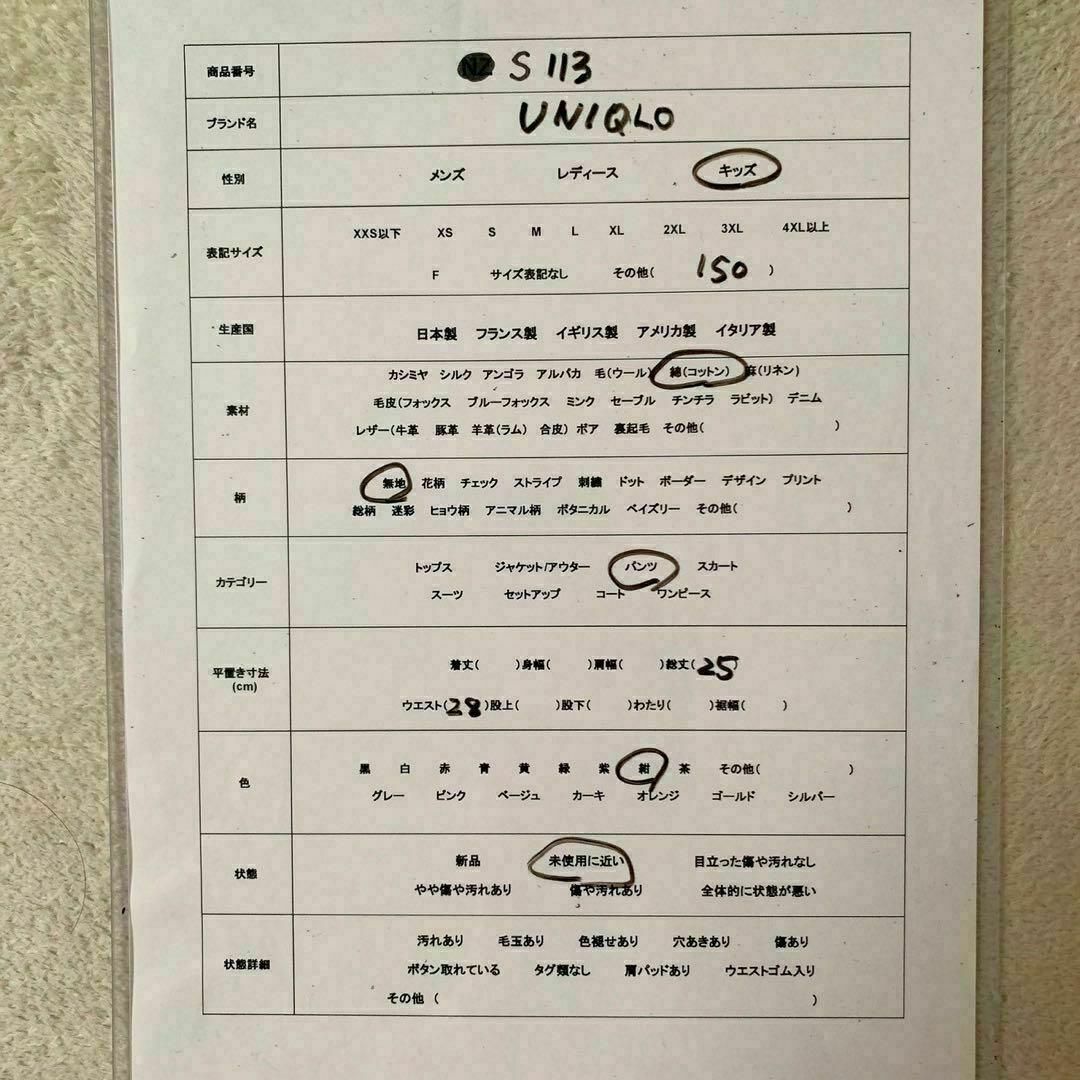 商品番号 NZ S 113
ブランド名 UNIQLO
性別 メンズ レディース キッズ
表記サイズ
XXS以下 XS S M L XL 2XL 3XL 4XL以上
F サイズ表記なし その他( 150 )
生産国 日本製 フランス製 イギリス製 アメリカ製 イタリア製
素材
カシミヤ シルク アンゴラ アルパカ 毛(ウール) 綿(コットン) 麻(リネン)
毛皮(フォックス ブルーフォックス ミンク セーブル チンチラ ラビット) デニム
レザー(牛革 豚革 羊革(ラム) 合皮) ボア 裏起毛 その他( )
柄
無地 花柄 チェック ストライプ 刺繍 ドット ボーダー デザイン プリント
総柄 迷彩 ヒョウ柄 アニマル柄 ボタニカル ペイズリー その他( )
カテゴリー
トップス ジャケット/アウター パンツ スカート
スーツ セットアップ コート ワンピース
平置き寸法
(cm)
着丈( )身幅( )肩幅( )総丈( 25 )
ウエスト( 28 )股上( )股下( )わたり( )裾幅( )
色
黒 白 赤 青 黄 緑 紫 紺 茶 その他( )
グレー ピンク ベージュ カーキ オレンジ ゴールド シルバー
状態
新品 未使用に近い 目立った傷や汚れなし
やや傷や汚れあり 傷や汚れあり 全体的に状態が悪い
状態詳細
汚れあり 毛玉あり 色褪せあり 穴あきあり 傷あり
ボタン取れている タグ類なし 肩パッドあり ウエストゴム入り
その他 ( )